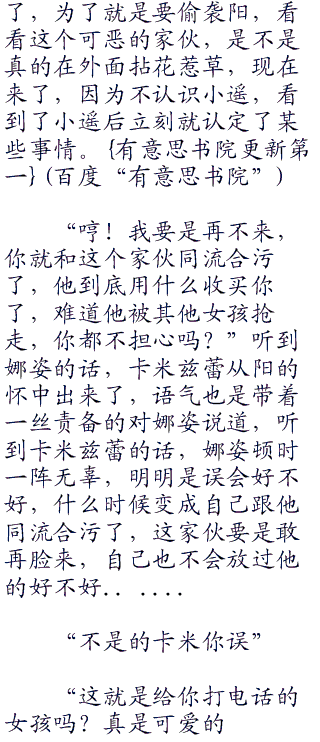 了，为了就是要偷袭阳，看
看这个可恶的家伙，是不是
真的在外面拈花惹草，现在
来了，因为不认识小遥，看
到了小遥后立刻就认定了某
些事情。{有意思书院更新第
一}(百度“有意思书院”)
“哼！我要是再不来，
你就和这个家伙同流合污
了，他到底用什么收买你
了，难道他被其他女孩抢
走，你都不担心吗？”听到
娜姿的话，卡米兹蕾从阳的
怀中出来了，语气也是带着
一丝责备的对娜姿说道，听
到卡米兹蕾的话，娜姿顿时
一阵无辜，明明是误会好不
好，什么时候变成自己跟他
同流合污了，这家伙要是敢
再脸来，自己也不会放过他
的好不好．．．．．．
“不是的卡米你误”
“这就是给你打电话的
女孩吗？真是可爱的